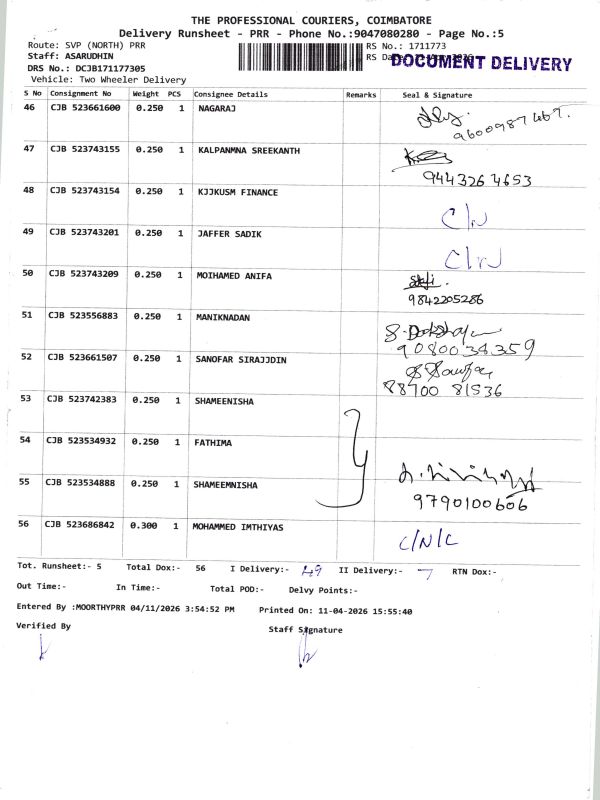 THE PROFESSIONAL COURIERS, COIMBATORE
Delivery Runsheet - PRR - Phone No.:9047080280 - Page No.:5
Route: SVP (NORTH) PRR RS No.: 1711773
Staff: ASARUDHIN RS Da
DOCUMENT DELIVERY
DRS No.: DCJB171177305
Vehicle: Two Wheeler Delivery
S No Consignment No Weight PCS Consignee Details Remarks Seal & Signature
46 CJB 523661600 0.250 1 NAGARAJ
9600987467.
47 CJB 523743155 0.250 1 KALPANMNA SREEKANTH
9443264653
48 CJB 523743154 0.250 1 KJJKUSM FINANCE
49 CJB 523743201 0.250 1 JAFFER SADIK
50 CJB 523743209 0.250 1 MOIHAMED ANIFA
9842205286
51 CJB 523556883 0.250 1 MANIKNADAN
9080034359
52 CJB 523661507 0.250 1 SANOFAR SIRAJJDIN
88700 81536
53 CJB 523742383 0.250 1 SHAMEENISHA
54 CJB 523534932 0.250 1 FATHIMA
55 CJB 523534888 0.250 1 SHAMEEMNISHA
9790100606
56 CJB 523686842 0.300 1 MOHAMMED IMTHIYAS C/N/C
Tot. Runsheet:- 5 Total Dox:- 56 I Delivery:- 49 II Delivery:- 7 RTN Dox:-
Out Time:- In Time:- Total POD:- Delvy Points:-
Entered By :MOORTHYPRR 04/11/2026 3:54:52 PM Printed On: 11-04-2026 15:55:40
Verified By Staff Signature